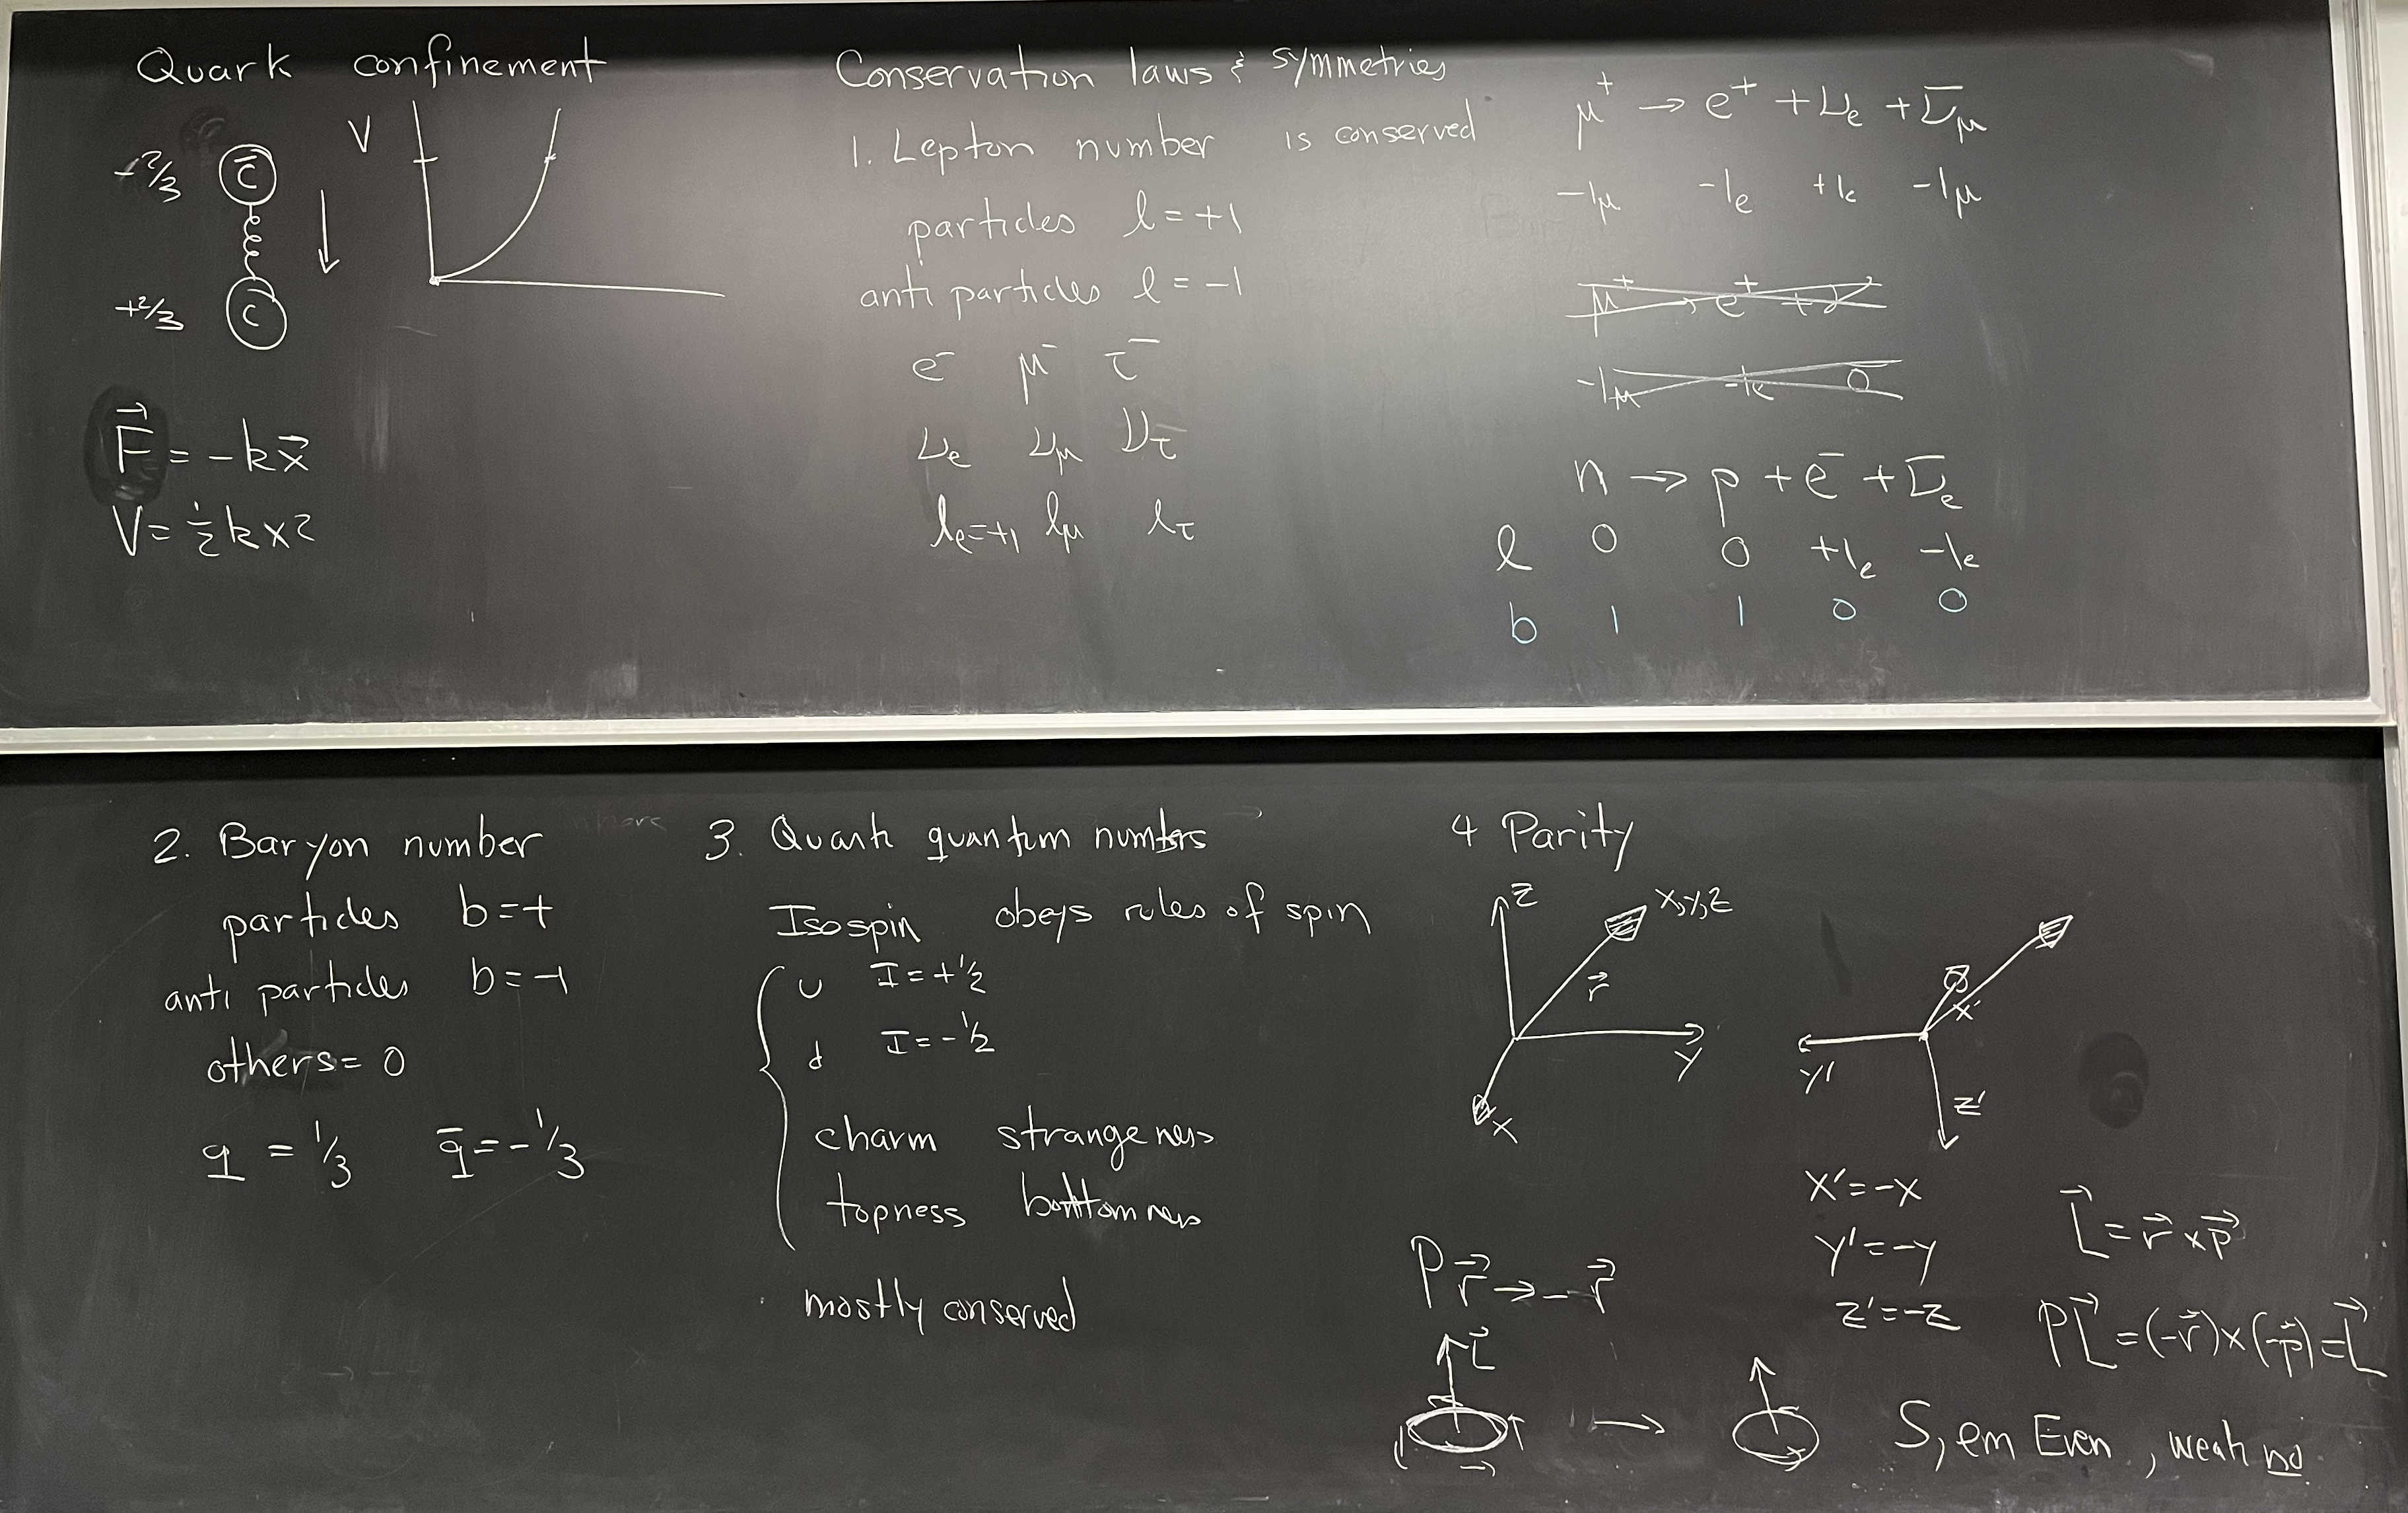 Quark confinement
V
-2/3 c̄
+2/3 c
F⃗ = -kx⃗
V = ½kx²
Conservation laws & symmetries
1. Lepton number is conserved
particles l = +1
anti particles l = -1
e⁻ μ⁻ τ⁻
νe νμ ντ
le=+1 lμ lτ
μ⁺ → e⁺ + νe + ν̄μ
-1μ -1e +1e -1μ
μ⁺ → e⁺ + γ
-1μ -1e 0
n → p + e⁻ + ν̄e
l 0 0 +1e -1e
b 1 1 0 0
2. Baryon number
particles b=+
anti particles b=-1
others= 0
q = 1/3 q̄=-1/3
3. Quark quantum numbers
Isospin obeys rules of spin
u I=+½
d I=-½
charm strangeness
topness bottomness
mostly conserved
4 Parity
z x,y,z
r⃗
y
x
x'
y'
z'
x'=-x
y'=-y
z'=-z
Pr⃗ → -r⃗
L⃗ = r⃗ × p⃗
PL⃗ = (-r⃗)×(-p⃗) = L⃗
L⃗
→
S, em Even, weak no